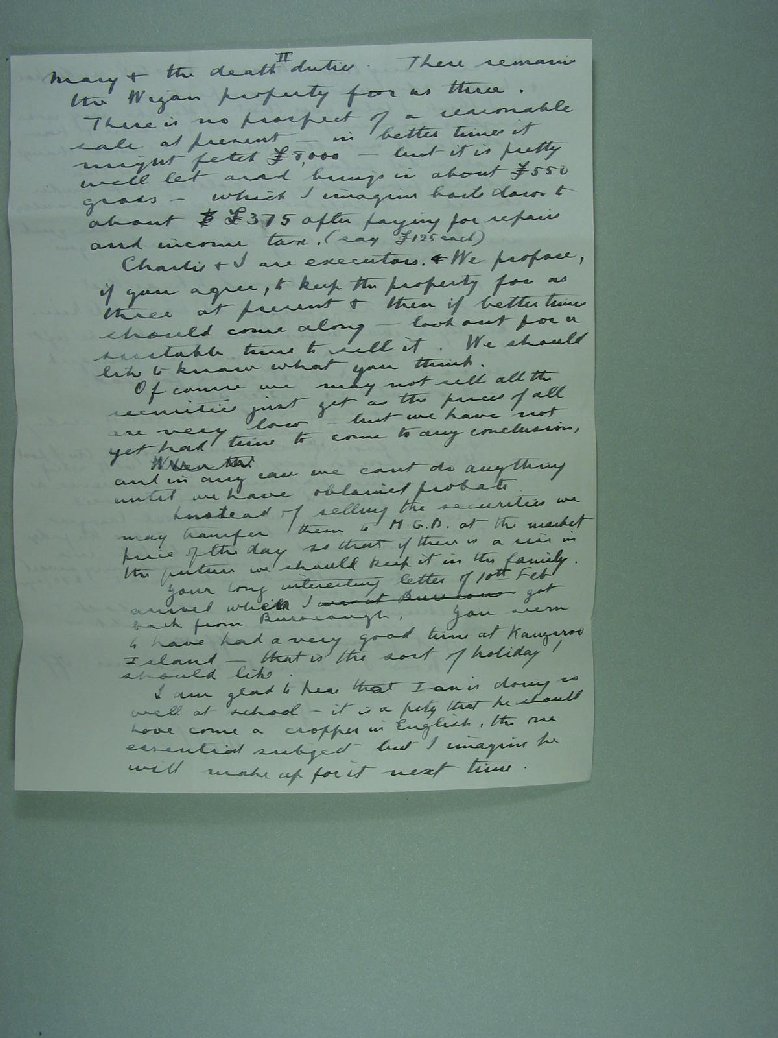 II
Mary & the death duties. There remains
the Wigan property for us three.
There is no prospect of a reasonable
sale at present — in better times it
might fetch £8,000 — but it is pretty
well let and brings in about £550
gross — which I imagine boils down to
about £375 after paying for repairs
and income tax. (say £125 each)
Charlie & I are executors. & We propose,
if you agree, to keep the property for us
three at present & then if better times
should come along — look out for a
suitable time to sell it. We should
like to know what you think.
Of course we may not sell all the
securities just yet as the prices of all
are very low — but we have not
yet had time to come to any conclusion,
When the
and in any case we cant do anything
until we have obtained probate
Instead of selling the securities we
may transfer them to M.G.B. at the market
price of the day so that if there is a rise in
the future we should keep it in the family.
Your long interesting letter of 10th Feb
arrived when I was at got
back from You seem
to have had a very good time at Kangaroo
Island — that is the sort of holiday I
should like.
I am glad to hear that Ian is doing so
well at school — it is a pity that he should
have come a cropper in English, the one
essential subject but I imagine he
will make up for it next time.